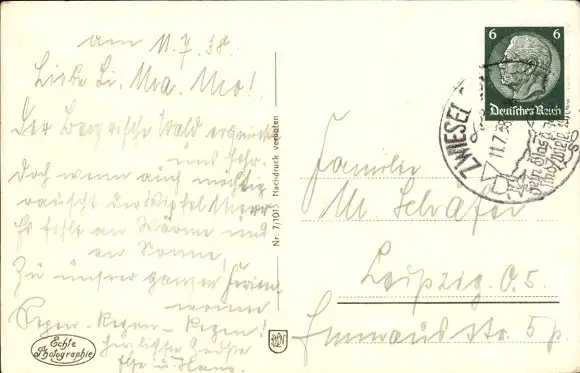 am 11.7.38.
Liebe Li, Ma, Mo!
Der Bayrische Wald erquickt
uns sehr.
Doch wenn auch mächtig
rauscht der Wipfel Meer
Es fehlt an Wärme und
an Sonne,
Zu unsrer ganzen Ferien
wonne
Regen - Regen - Regen!
Herzlichste Grüße
Else u. Hans
Echte
Photographie
Nr. 7/101 Nachdruck verboten
6 6
Deutsches Reich
ZWIESEL
11.7.38
Familie
M. Schäfer
Leipzig O. 5.
Emmausstr. 5 p.